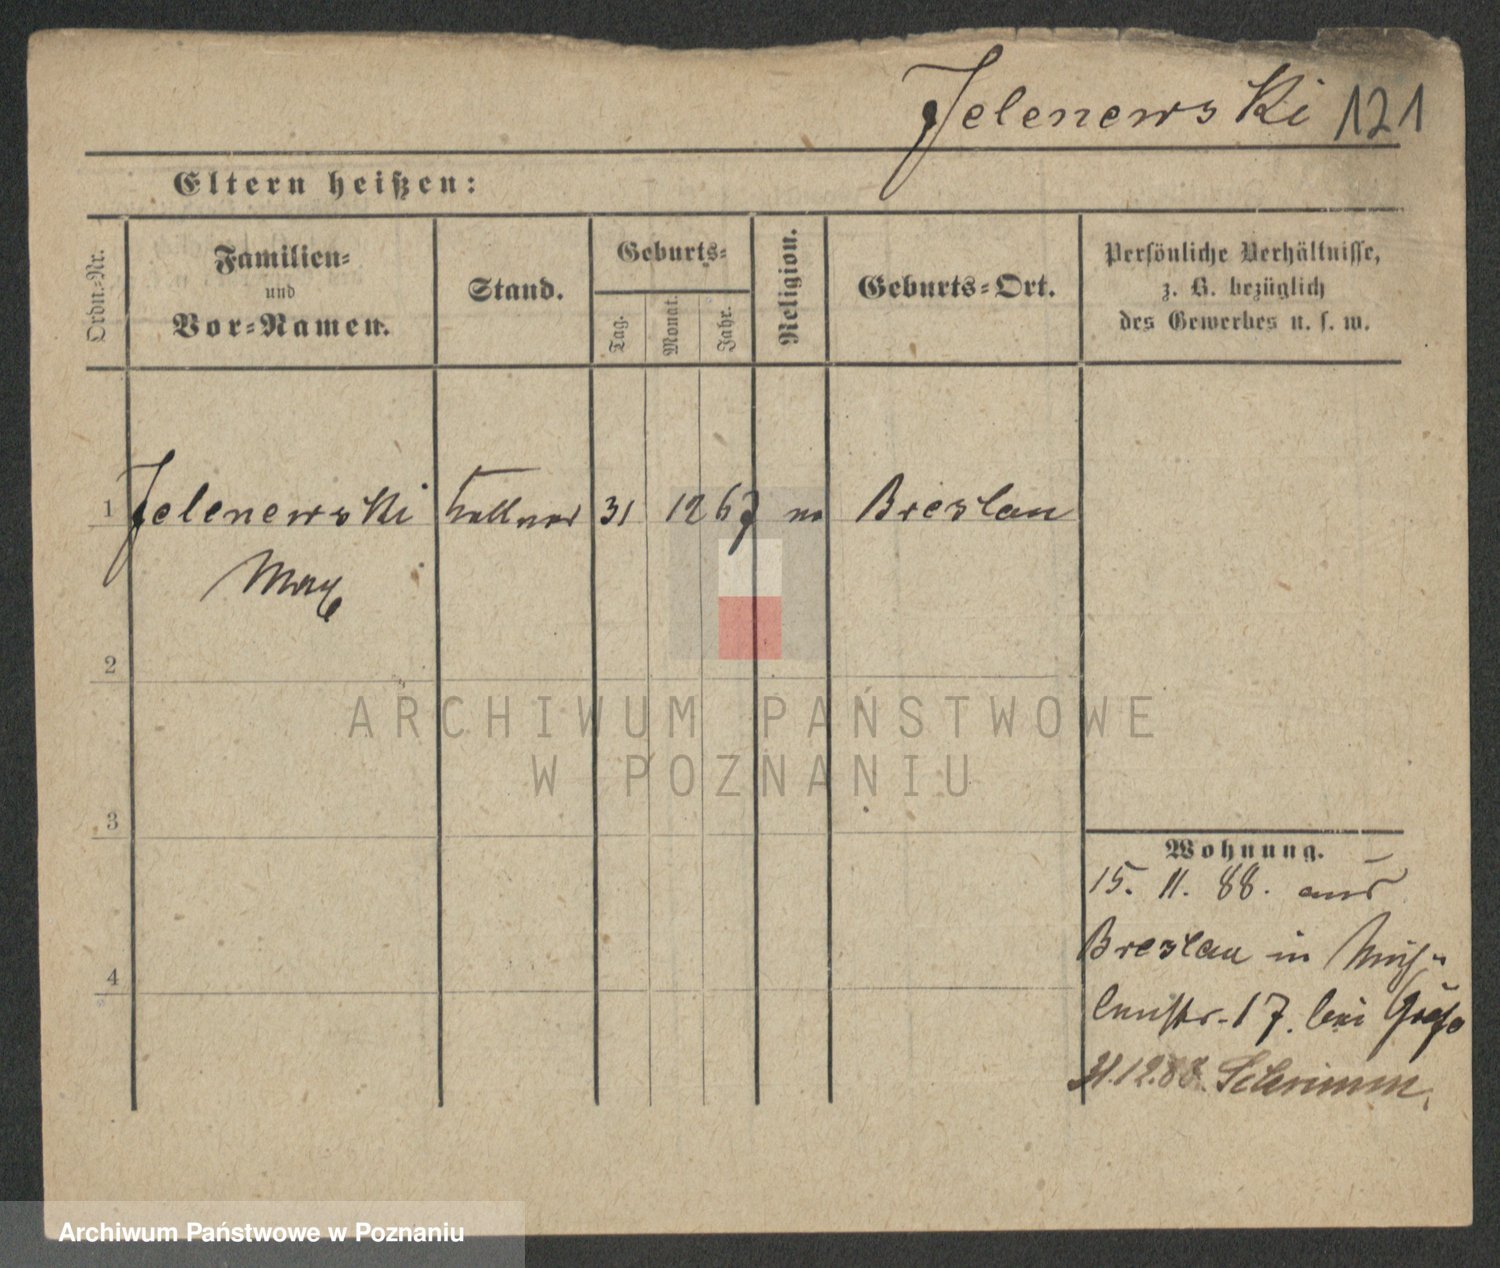 Jelenewski 121
Eltern heißen:
Ordn.-Nr.
Familien-
und
Vor-Namen.
Stand.
Geburts-
Tag.
Monat.
Jahr.
Religion.
Geburts-Ort.
Persönliche Verhältnisse,
z. B. bezüglich
des Gewerbes u. s. w.
1 Jelenewski Kellner 31 12 67 Breslau
Max
2
3
4
Wohnung.
15. 11. 88. aus
Breslau in Müh-
lenstr. 17. bei
31.12.88. Schrimm.
ARCHIWUM PAŃSTWOWE
W POZNANIU
Archiwum Państwowe w Poznaniu